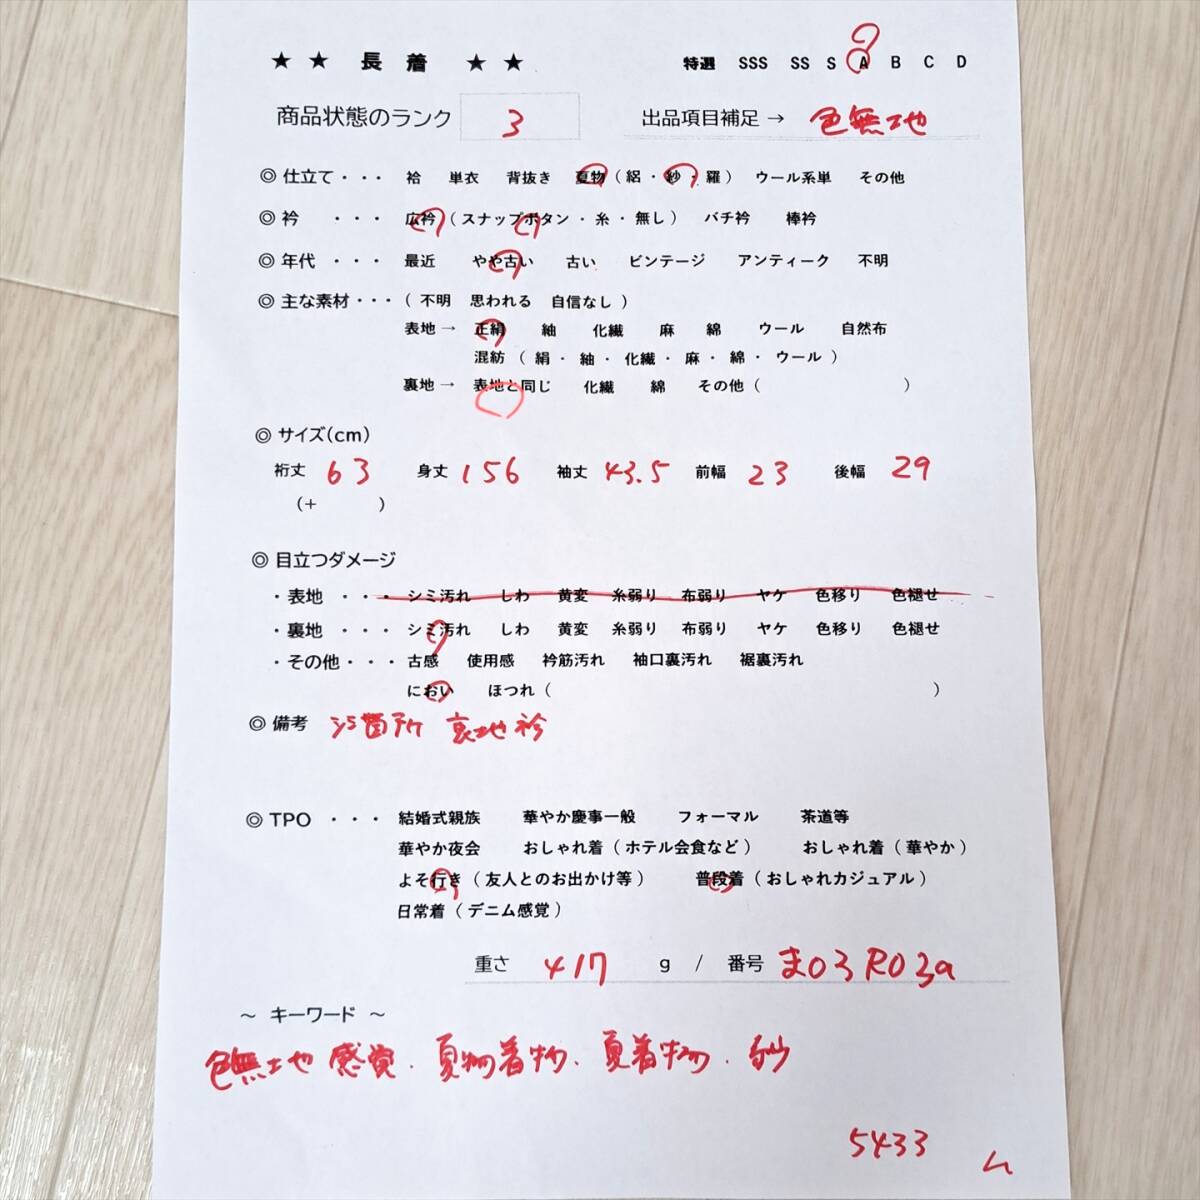 ★ ★ 長 着 ★ ★ 特選 SSS SS S A B C D
商品状態のランク 3 出品項目補足 → 色無地
◎ 仕立て ・・・ 袷 単衣 背抜き 夏物 ( 絽 ・ 紗 ・ 羅 ) ウール系単 その他
◎ 衿 ・・・ 広衿 ( スナップボタン ・ 糸 ・ 無し ) バチ衿 棒衿
◎ 年代 ・・・ 最近 やや古い 古い ビンテージ アンティーク 不明
◎ 主な素材 ・・・ ( 不明 思われる 自信なし )
表地 → 正絹 紬 化繊 麻 綿 ウール 自然布
混紡 ( 絹 ・ 紬 ・ 化繊 ・ 麻 ・ 綿 ・ ウール )
裏地 → 表地と同じ 化繊 綿 その他 ( )
◎ サイズ(cm)
裄丈 63 身丈 156 袖丈 43.5 前幅 23 後幅 29
(+ )
◎ 目立つダメージ
・ 表地 ・・・ シミ汚れ しわ 黄変 糸弱り 布弱り ヤケ 色移り 色褪せ
・ 裏地 ・・・ シミ汚れ しわ 黄変 糸弱り 布弱り ヤケ 色移り 色褪せ
・ その他 ・・・ 古感 使用感 衿筋汚れ 袖口裏汚れ 裾裏汚れ
におい ほつれ ( )
◎ 備考 箇所 裏地衿
◎ TPO ・・・ 結婚式親族 華やか慶事一般 フォーマル 茶道等
華やか夜会 おしゃれ着 ( ホテル会食など ) おしゃれ着 ( 華やか )
よそ行き ( 友人とのお出かけ等 ) 普段着 ( おしゃれカジュアル )
日常着 ( デニム感覚 )
重さ 417 g / 番号 ま03R03a
～ キーワード ～
色無地 感覚 . 夏物着物 . 夏着物 . 紗
5433 ム